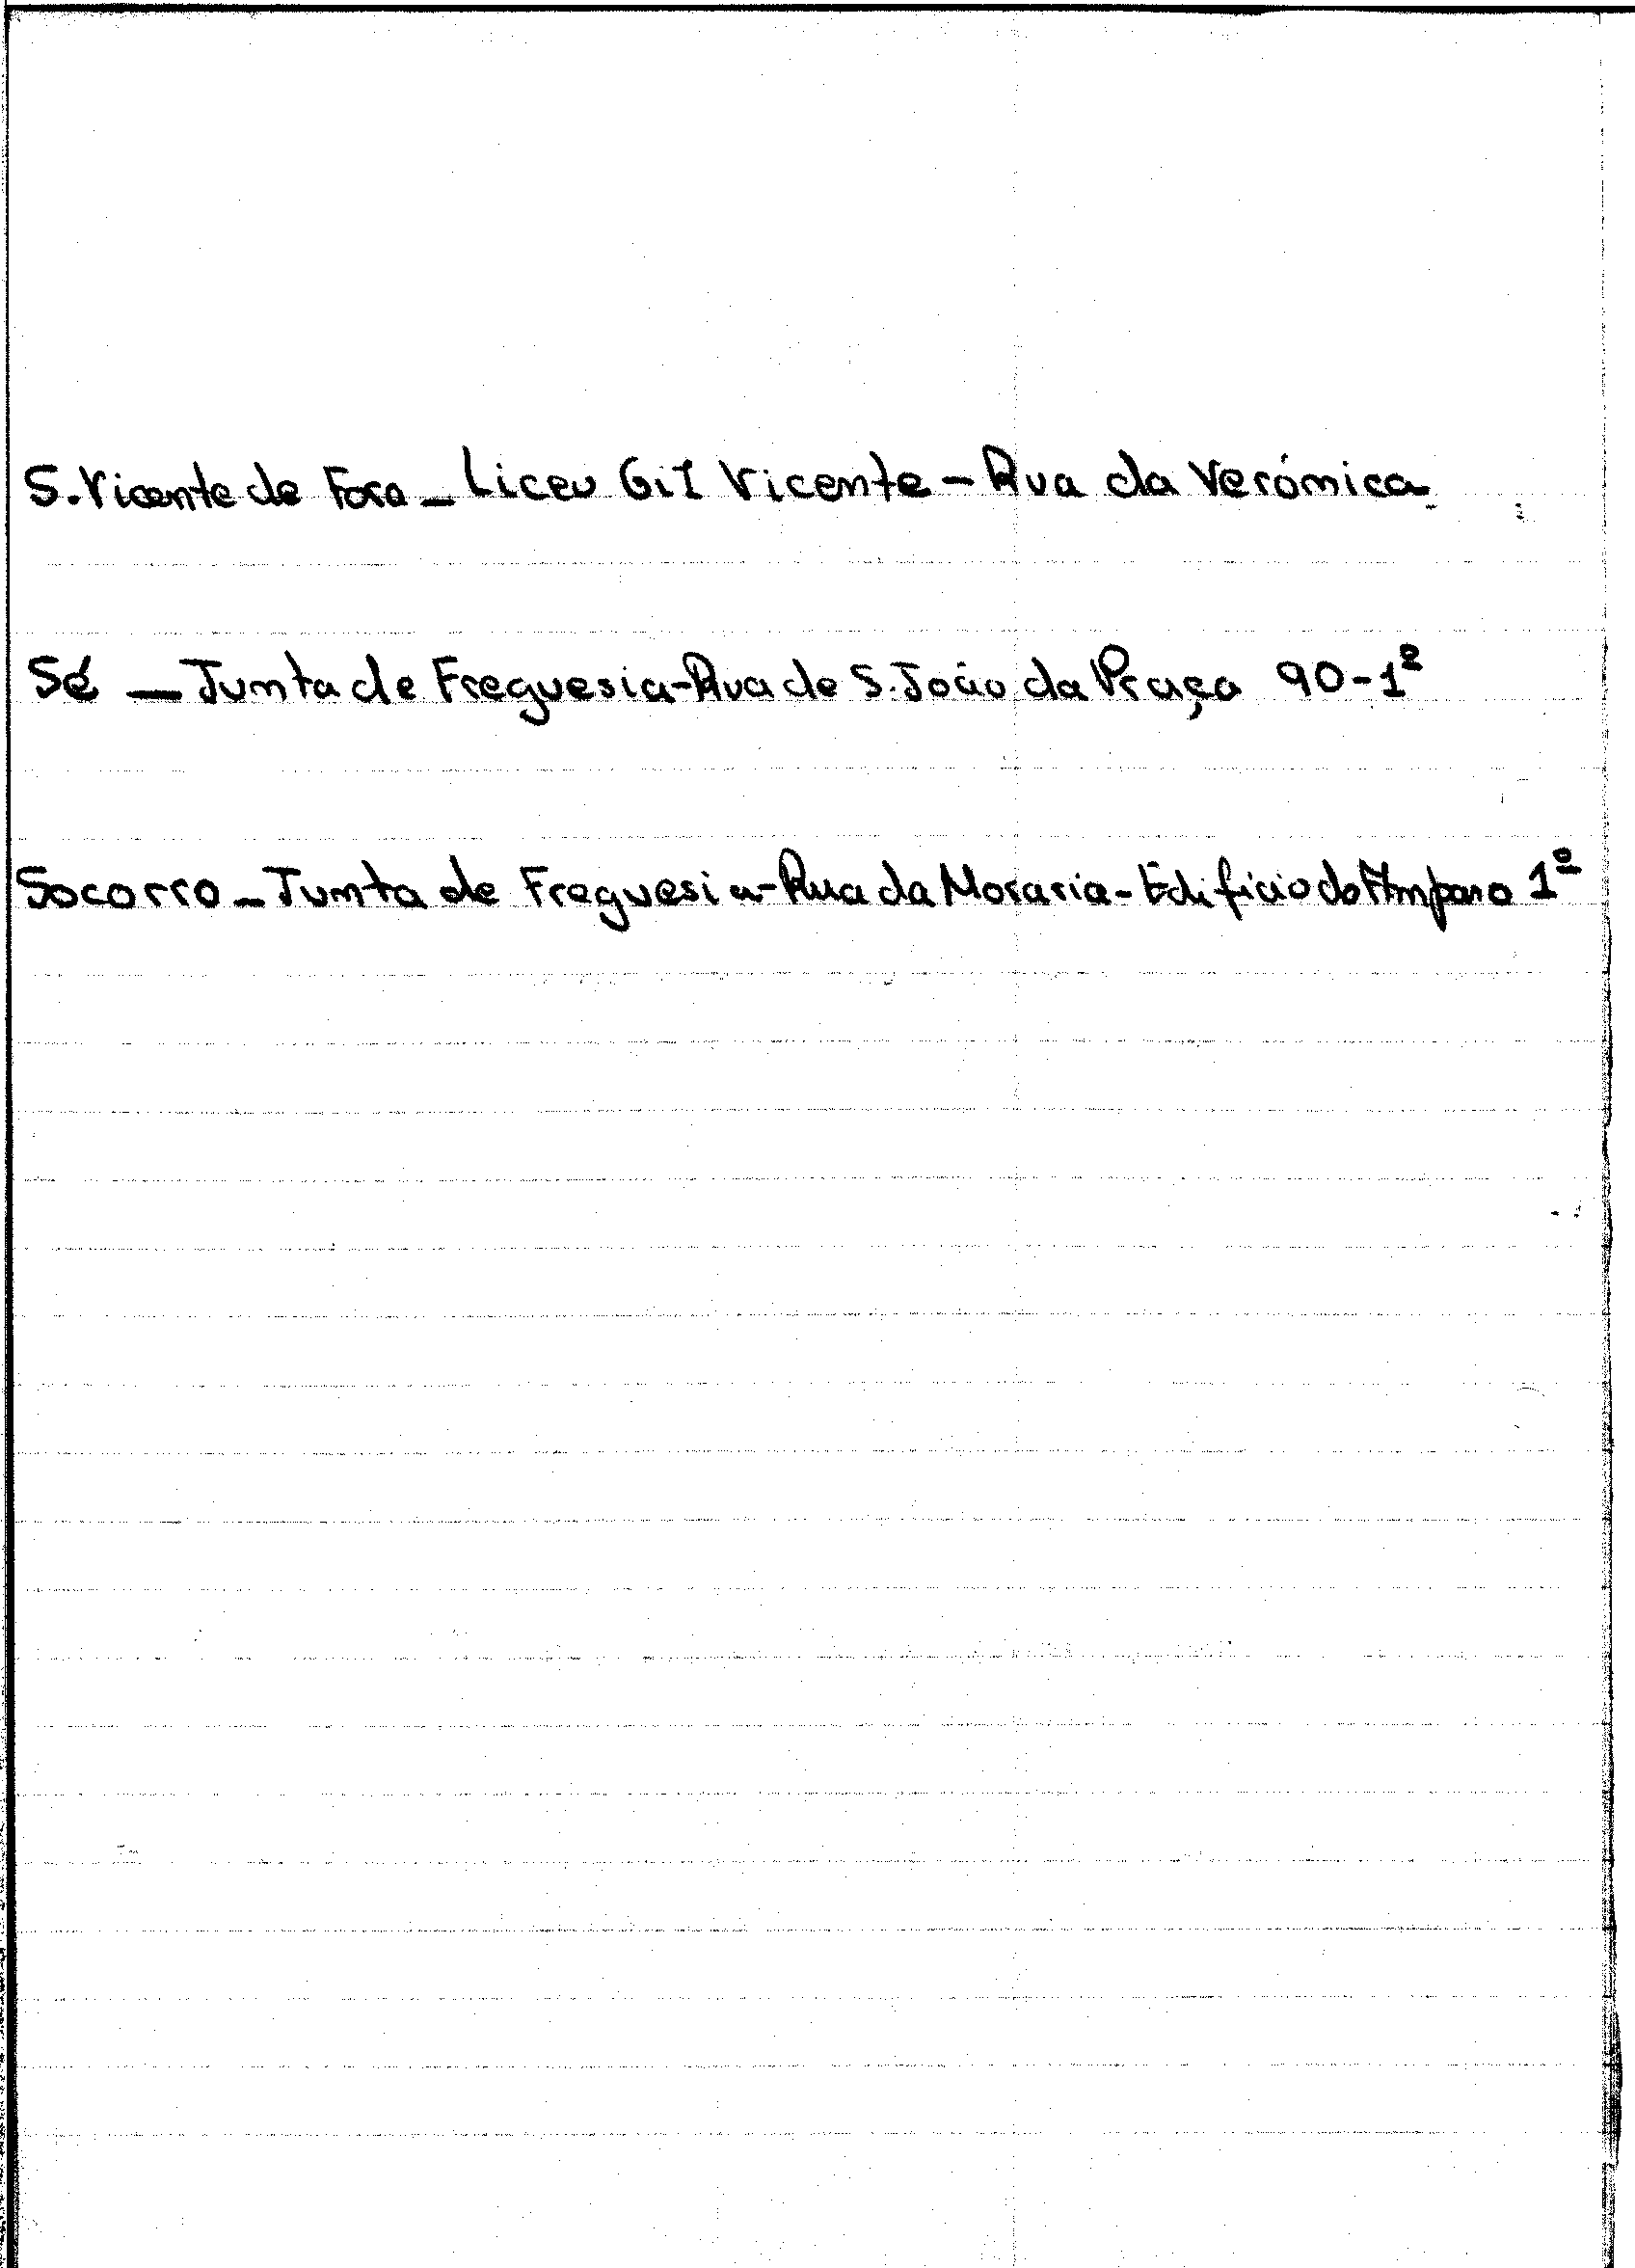 S. Vicente de Fora - Liceu Gil Vicente - Rua da Verónica
Sé - Junta de Freguesia - Rua de S. João da Praça 90-1º
Socorro - Junta de Freguesia - Rua da Moraria - Edifício do Amparo 1º